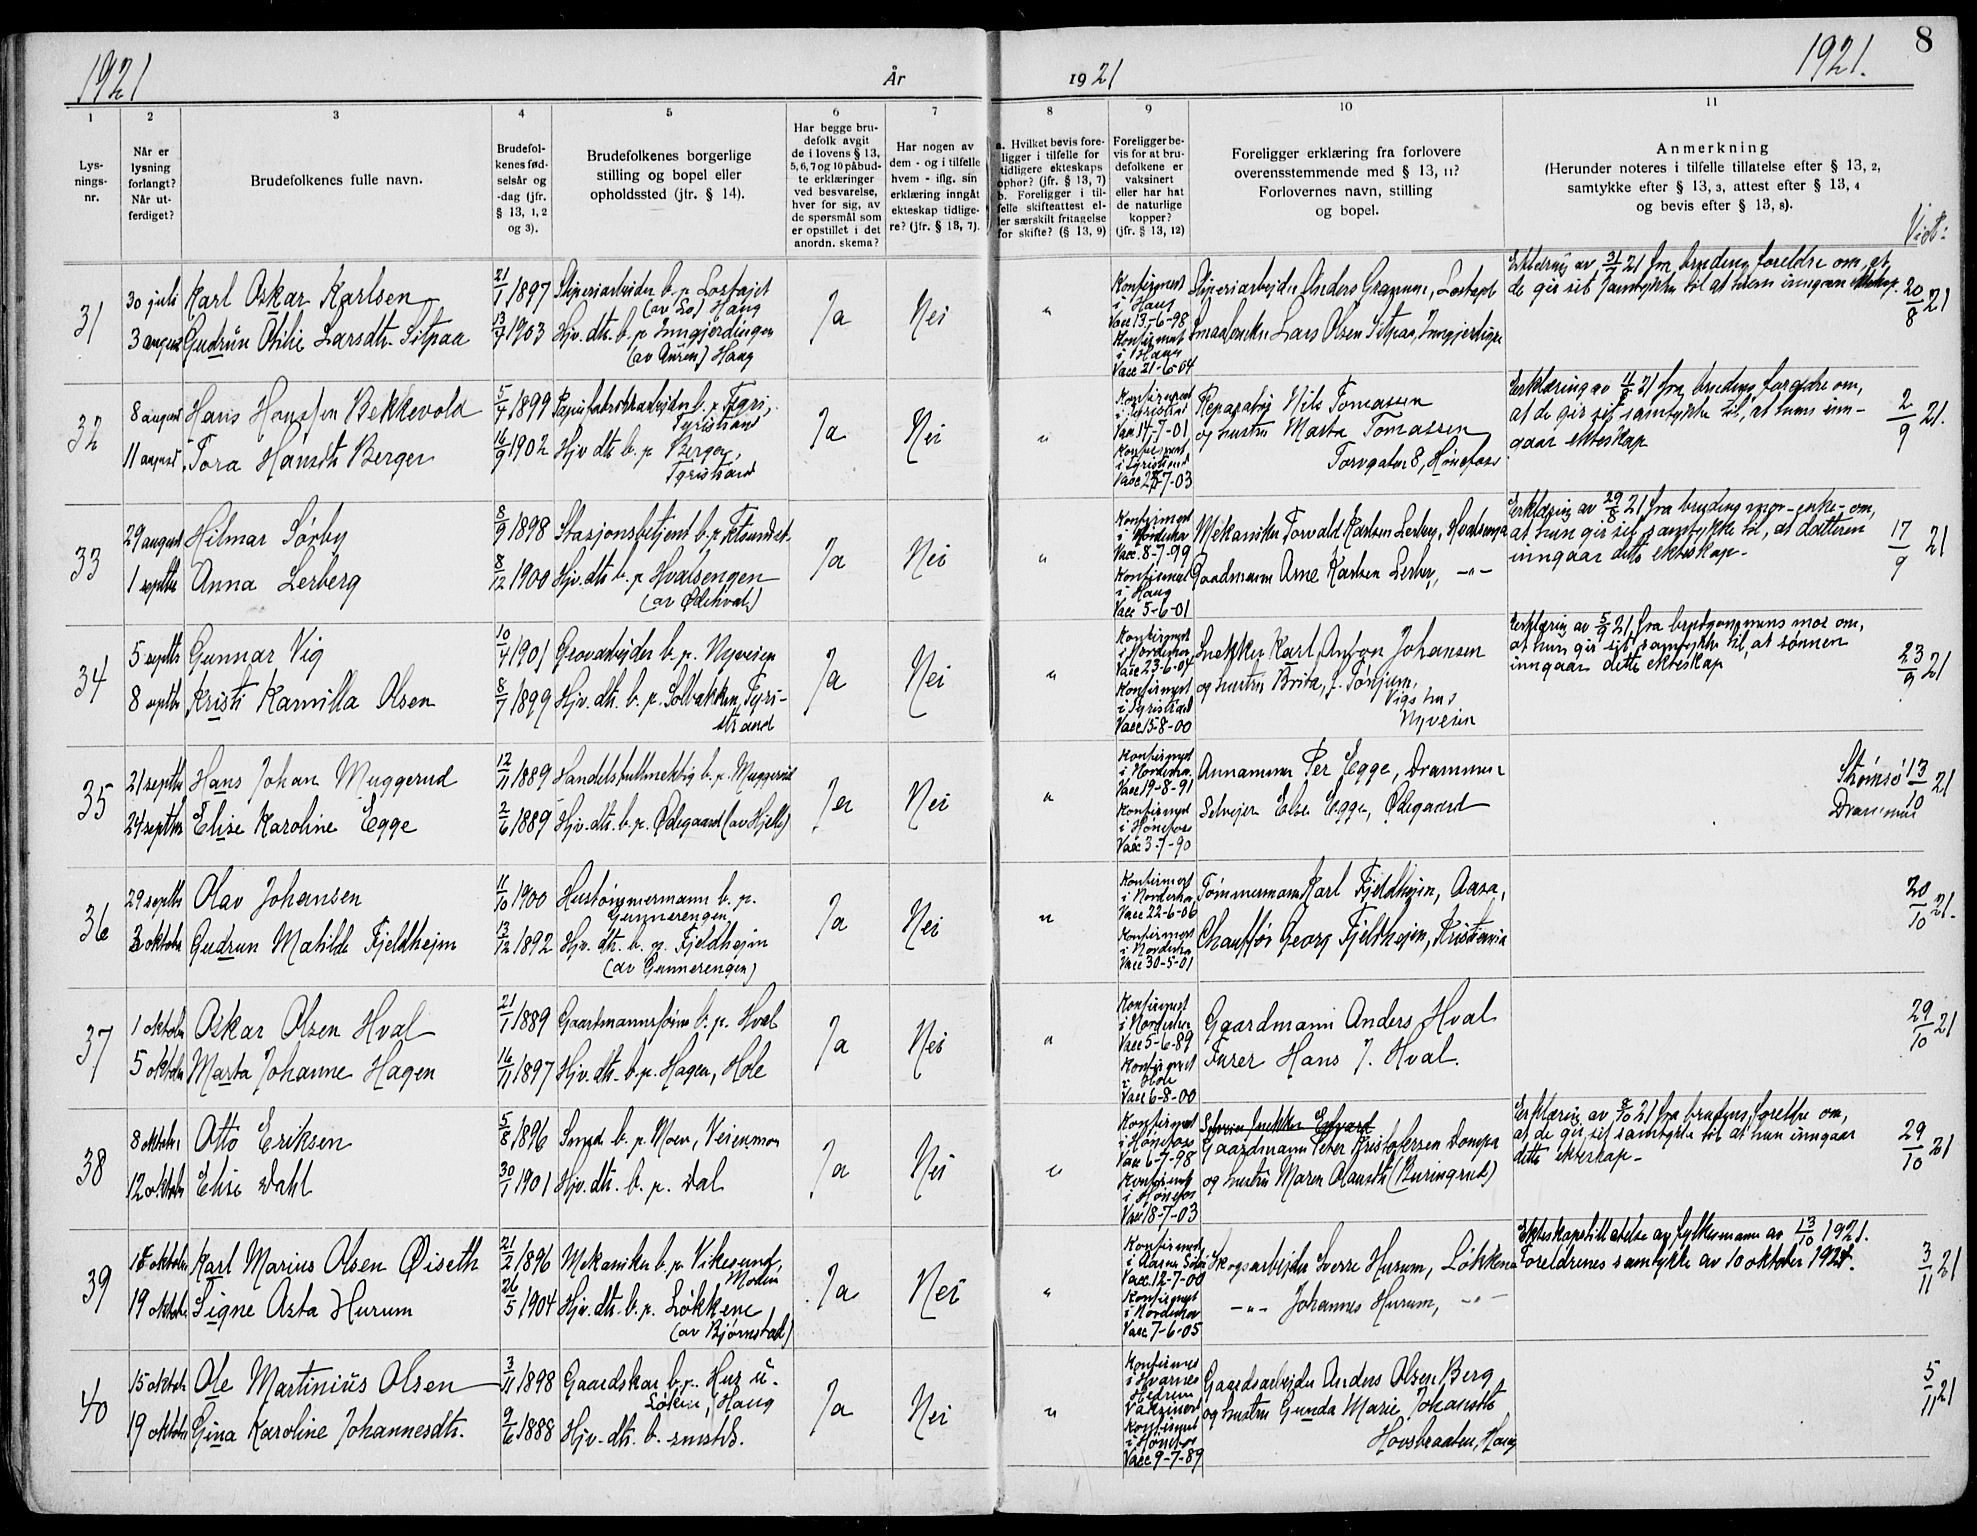 1921
År
1921
1921.
8
1
2
3
4
5
6
7
8
9
10
11
Lys-
nings-
nr.
Når er
lysning
forlangt?
Når ut-
ferdiget?
Brudefolkenes fulle navn.
Brudefol-
kenes fød-
selsår og
-dag (jfr.
§ 13, 1, 2
og 3).
Brudefolkenes borgerlige
stilling og bopel eller
opholdssted (jfr. § 14).
Har begge bru-
defolk avgit
de i lovens § 13,
5, 6, 7 og 10 påbud-
te erklæringer
ved besvarelse,
hver for sig, av
de spørsmål som
er opstillet i det
anordn. skema?
Har nogen av
dem - og i tilfelle
hvem - iflg. sin
erklæring inngåt
ekteskap tidlige-
re? (jfr. § 13, 7).
a. Hvilket bevis fore-
ligger i tilfelle for
tidligere ekteskaps
ophør? (jfr. § 13, 7)
b. Foreligger i til-
felle skifteattest el-
ler særskilt fritagelse
for skifte? (§ 13, 9)
Foreligger be-
vis for at bru-
defolkene er
vaksinert
eller har hat
de naturlige
kopper?
(jfr. § 13, 12)
Foreligger erklæring fra forlovere
overensstemmende med § 13, 11?
Forlovernes navn, stilling
og bopel.
Anmerkning
(Herunder noteres i tilfelle tillatelse efter § 13, 2,
samtykke efter § 13, 3, attest efter § 13, 4
og bevis efter § 13, 8).
Viet:
31
30 juli
3 august
Karl Oskar Karlsen
Gudrun Otilie Larsdtr. Sitpaa
21/1 1897
13/7 1903
Sliperiarbeider b. p. Lostajet
(av Lo) Haug
Hjv. dtr. b. p. Inngjerdingen
(av Auren) Haug
Ja
Nei
"
Konfirmert
i Haug
Vacc 13-6-98
Konfirmert
i Haug
Vacc 21-6-04
Sliperiarbeider Anders
Smaabruker Lars Olsen Sitpaa, Inngjerdingen
Erklæring av 31/7 21 fra brudens foreldre om, at
de gir sit samtykke til at hun inngaar ekteskap.
20/8 21
32
8 august
11 august
Hans Hanssen Bekkevold
Tora Hansdtr Berger
5/4 1899
16/9 1902
Papirfabrikkarbeider b. p. Tyri,
Tyristrand
Hjv dtr b. p Berger,
Tyristrand
Ja
Nei
"
Konfirmert
i Tyristrand
Vacc 14-7-01
Konfirmert
i Tyristrand
Vacc 25-7-03
Reparatør Nils Tomassen
og hustru Marta Tomassen
Torvgaten 8, Hønefoss
Erklæring av 4/8 21 fra brudens foreldre om,
at de gir sit samtykke til, at hun inn-
gaar ekteskap
2/9 21.
33
29 august
1 septbr
Hilmar Sørby
Anna Lerberg
8/9 1898
8/12 1900
Stasjonsbetjent b. p. Fetsundet.
Hjv. dtr. b. p Hvalsengen
(av Ødehval)
Ja
Nei
"
Konfirmert
i Norderhov
Vacc 8-7-99
Konfirmert
i Haug
Vacc 5-6-01
Mekaniker Torvald Karlsen Lerberg, Hvalsenga
Gaardmann Arne Karlsen Lerberg, -"-
Erklæring av 29/8 21 fra brudens mor - enke - om,
at hun gir sit samtykke til, at datteren
inngaar dette ekteskap -
17/9 21
34
5 septbr
8 septbr
Gunnar Vig
Kristi Kamilla Olsen
10/4 1901
8/7 1899
Grovarbeider b. p. Nyveien
Hjv. dtr. b. p. Solbakken, Tyri-
strand
Ja
Nei
"
Konfirmert
i Norderhov
Vacc 23-6-04
Konfirmert
i Tyristrand
Vacc 15-8-00
Snekker Karl Anton Johansen
og hustru Brita, f. Tønjum,
Vigs hus
Nyveien
Erklæring av 5/9 21 fra brudgommens mor om,
at hun gir sit samtykke til, at sønnen
inngaar dette ekteskap
23/9 21
35
21 septbr
24 septbr
Hans Johan Muggerud
Elise Karoline Egge
12/11 1889
2/6 1889
Handelsfullmektig b. p. Muggerud
Hjv. dtr. b. p. Ødegaard (av Hjelle)
Ja
Nei
"
Konfirmert
i Norderhov
Vacc 19-8-91
Konfirmert
i Hønefoss
Vacc 3-7-90
Per Egge, Drammen
Selveier Ebbe Egge, Ødegaard
Strømsø 13/10 21
Drammen
36
29 septbr
3 oktober
Olav Johansen
Gudrun Matilde Fjeldheim
11/10 1900
13/12 1892
Hustømmermann b. p.
Gunnerengen
Hjv. dtr. b. p. Fjeldheim
(av Gunnerengen)
Ja
Nei
"
Konfirmert
i Norderhov
Vacc 22-6-06
Konfirmert
i Norderhov
Vacc 30-5-01
Tømmermann Karl Fjeldheim, Aasa,
Chauffør Georg Fjeldheim, Kristiania
20/10 21.
37
1 oktober
5 oktober
Oskar Olsen Hval
Marta Johanne Hagen
21/1 1889
16/11 1897
Gaardmannssønn b. p. Hval
Hjv. dtr. b. p. Hagen, Hole
Ja
Nei
"
Konfirmert
i Norderhov
Vacc 5-6-89
Konfirmert
i Hole
Vacc 6-8-00
Gaardmann Anders Hval
Furer Hans J. Hval.
29/10 21
38
8 oktober
12 oktober
Otto Eriksen
Elise Dahl
5/8 1896
30/1 1901
Smed b. p. Moen, Veienmoen
Hjv. dtr. b. p. Dal
Ja
Nei
"
Konfirmert
i Hønefoss
Vacc 6-7-98
Konfirmert
i Hønefoss
Vacc 18-7-03
Gaardmann Peter Kristofersen Dompa
og hustru Maren Olausdtr (Buringrud)
Erklæring av 8/10 21 fra brudens foreldre om,
at de gir sit samtykke til at hun inngaar
dette ekteskap -
29/10 21
39
15 oktober
19 oktober
Karl Marius Olsen Øiseth
Signe Asta Hurum
21/2 1896
26/5 1904
Mekaniker b. p. Vikesund,
Modum
Hjv. dtr. b. p. Løkkene
(av Bjørnstad)
Ja
Nei
"
Konfirmert
Vacc. 12-7-00
Konfirmert
i Norderhov
Vacc 7-6-05
Skogsarbeider Sverre Hurum, Løkkene
-"- Johannes Hurum, -"-
Ekteskapstillatelse av fylkesmann av 13/10 1921.
Foreldrenes samtykke av 10 oktober 1921.
3/11 21
40
15 oktober
19 oktober
Ole Martinius Olsen
Gina Karoline Johannesdtr.
3/11 1898
9/6 1888
Gaardskar b. p. Hus u.
Løken, Haug
Hjv. dtr. b. smstds.
Ja
Nei
"
Konfirmert
i Hvarnes
Hedrum
Vaksinert
Konfirmert
i Hønefos
Vacc 9-7-89
Gaardsarbeider Anders Olsen Berg
og hustru Gunda Marie Johansdtr
Hovsbraaten, Haug
5/11 21